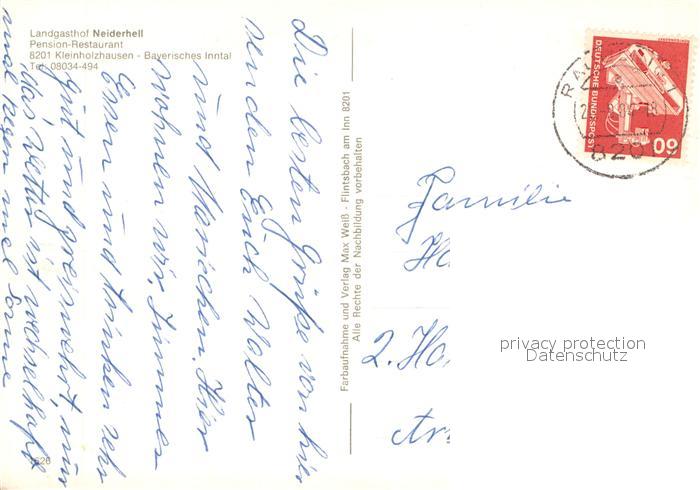 Landgasthof Neiderhell
Pension-Restaurant
8201 Kleinholzhausen - Bayerisches Inntal
Tel. 08034-494
Die besten Grüße von hier
senden Euch Walter
und Mariechen. Hier
wohnen wir, Zimmer
Essen und trinken sehr
gut und preiswehrt, nur
das Wetter ist wechselhaft
mal Regen mal Sonne
Farbaufnahme und Verlag Max Weiß - Flintsbach am Inn 8201
Alle Rechte der Nachbildung vorbehalten
DEUTSCHE BUNDESPOST
60
820
Familie
Ha
2. Ha.
privacy protection
Datenschutz